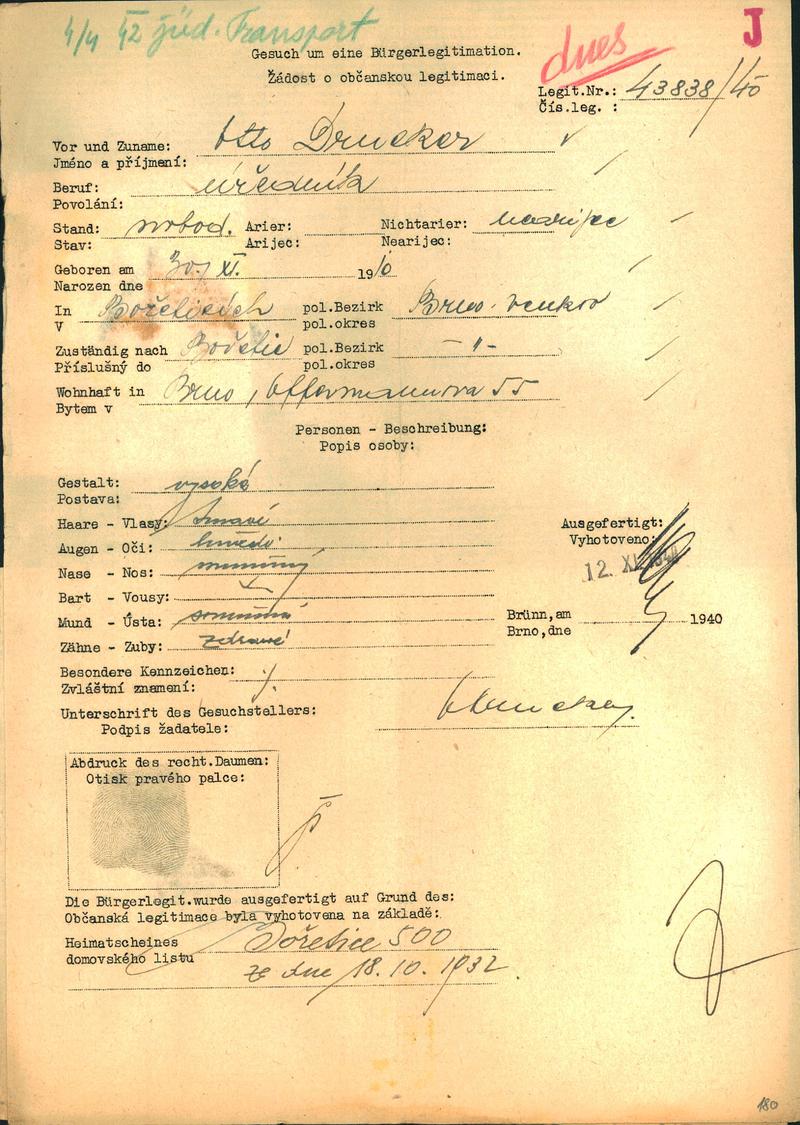 4/4 42 jüd. Transport
dnes
J
Gesuch um eine Bürgerlegitimation.
Žádost o občanskou legitimaci.
Legit.Nr.: 43838/40
Čís.leg. :
Vor und Zuname: Otto Drucker
Jméno a příjmení:
Beruf: úředník
Povolání:
Stand: svobod. Arier: Nichtarier: nearijec
Stav: Arijec: Nearijec:
Geboren am 30/XI. 1910
Narozen dne
In Bořeticích pol.Bezirk Brno-venkov
V pol.okres
Zuständig nach Bořetic pol.Bezirk — " —
Příslušný do pol.okres
Wohnhaft in Brno, Offermannova 55
Bytem v
Personen - Beschreibung:
Popis osoby:
Gestalt: vysoká
Postava:
Haare - Vlasy: tmavé
Augen - Oči: hnědé
Nase - Nos: souměrný
Bart - Vousy:
Mund - Ústa: souměrná
Zähne - Zuby: zdravé
Ausgefertigt:
Vyhotoveno:
12. XI. 1940
Brünn,am 1940
Brno,dne
Besondere Kennzeichen: ·/.
Zvláštní znamení:
Unterschrift des Gesuchstellers: Drucker
Podpis žadatele:
Abdruck des recht.Daumen:
Otisk pravého palce:
Die Bürgerlegit.wurde ausgefertigt auf Grund des:
Občanská legitimace byla vyhotovena na základě:
Heimatscheines Bořetice 500
domovského listu ze dne 18.10.1932.
180